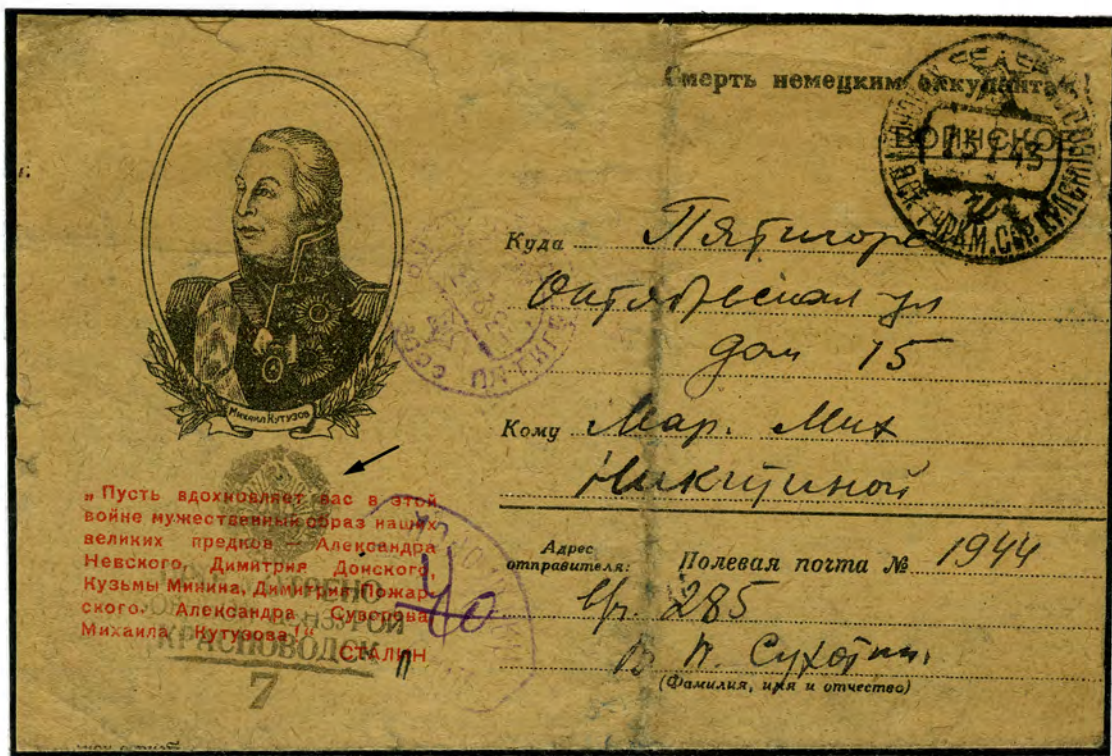 Смерть немецким оккупантам!
ВОИНСКОЕ
Куда Пятигорс
Октябрьская ул
дом 15
Кому Мар. Мих
Никитиной
Михаил Кутузов
„Пусть вдохновляет вас в этой
войне мужественный образ наших
великих предков — Александра
Невского, Димитрия Донского,
Кузьмы Минина, Димитрия Пожар-
ского, Александра Суворова,
Михаила Кутузова!“
СТАЛИН
ПРОСМОТРЕНО
ВОЕННОЙ ЦЕНЗУРОЙ
КРАСНОВОДСК
7
Адрес
отправителя:
Полевая почта № 1944
285
В П. Сухотин
(Фамилия, имя и отчество)